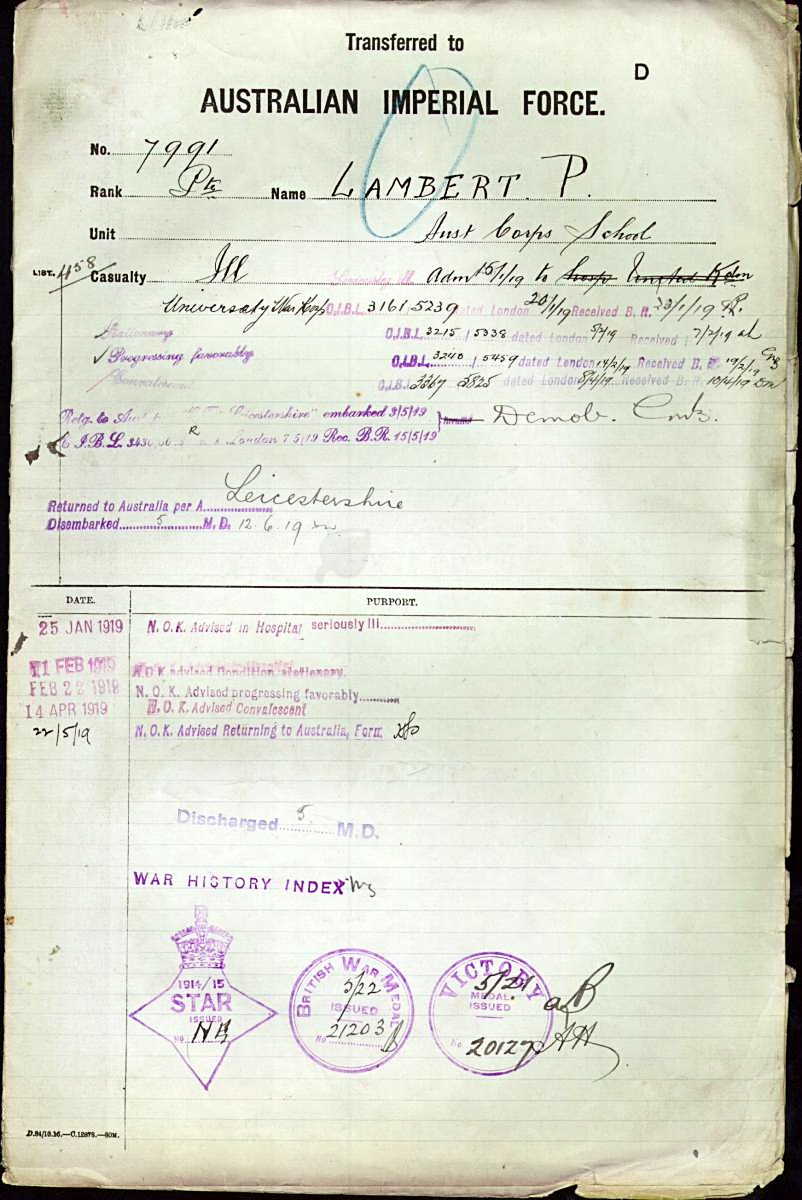 Transferred to
D
AUSTRALIAN IMPERIAL FORCE.
No. 7991
Rank Pte Name LAMBERT. P.
Unit Aust Corps School
LIST. 458
Casualty Ill Seriously ill Adm 15/1/19 to Hosp United Kdm
University War Hosp O.I.B.L. 3161 5239 dated London 20/1/19 Received B. R. 23/1/19
Stationary O.I.B.L. 3215 / 5338 dated London 5/2/19 Received 7/2/19
√ Progressing favorably O.I.B.L. 3240 / 5459 dated London 14/2/19 Received B. R. 19/2/19
Convalescent O.I.B.L. 3367 5825 dated London 8/4/19 Received B. R. 10/4/19
Retg. to Aust "Leicestershire" embarked 3/5/19 Demob.
C I.B.L. London 7 5/19 Rec. B.R. 15/5/19
Returned to Australia per A Leicestershire
Disembarked 5 M. D. 12. 6. 19
DATE. PURPORT.
25 JAN 1919 N. O. K. Advised in Hospital seriously Ill
11 FEB 1919 N O K advised Condition stationary.
FEB 22 1919 N. O. K. Advised progressing favorably
14 APR 1919 N. O. K. Advised Convalescent
22/5/19 N. O. K. Advised Returning to Australia, Form
Discharged 5. M.D.
WAR HISTORY INDEX
1914/15
STAR
ISSUED
No.
BRITISH WAR MEDAL
5/22
ISSUED
No 21203
VICTORY
5/21
MEDAL
ISSUED
No 20127
D.84/10.16.—C.12878.—50M.